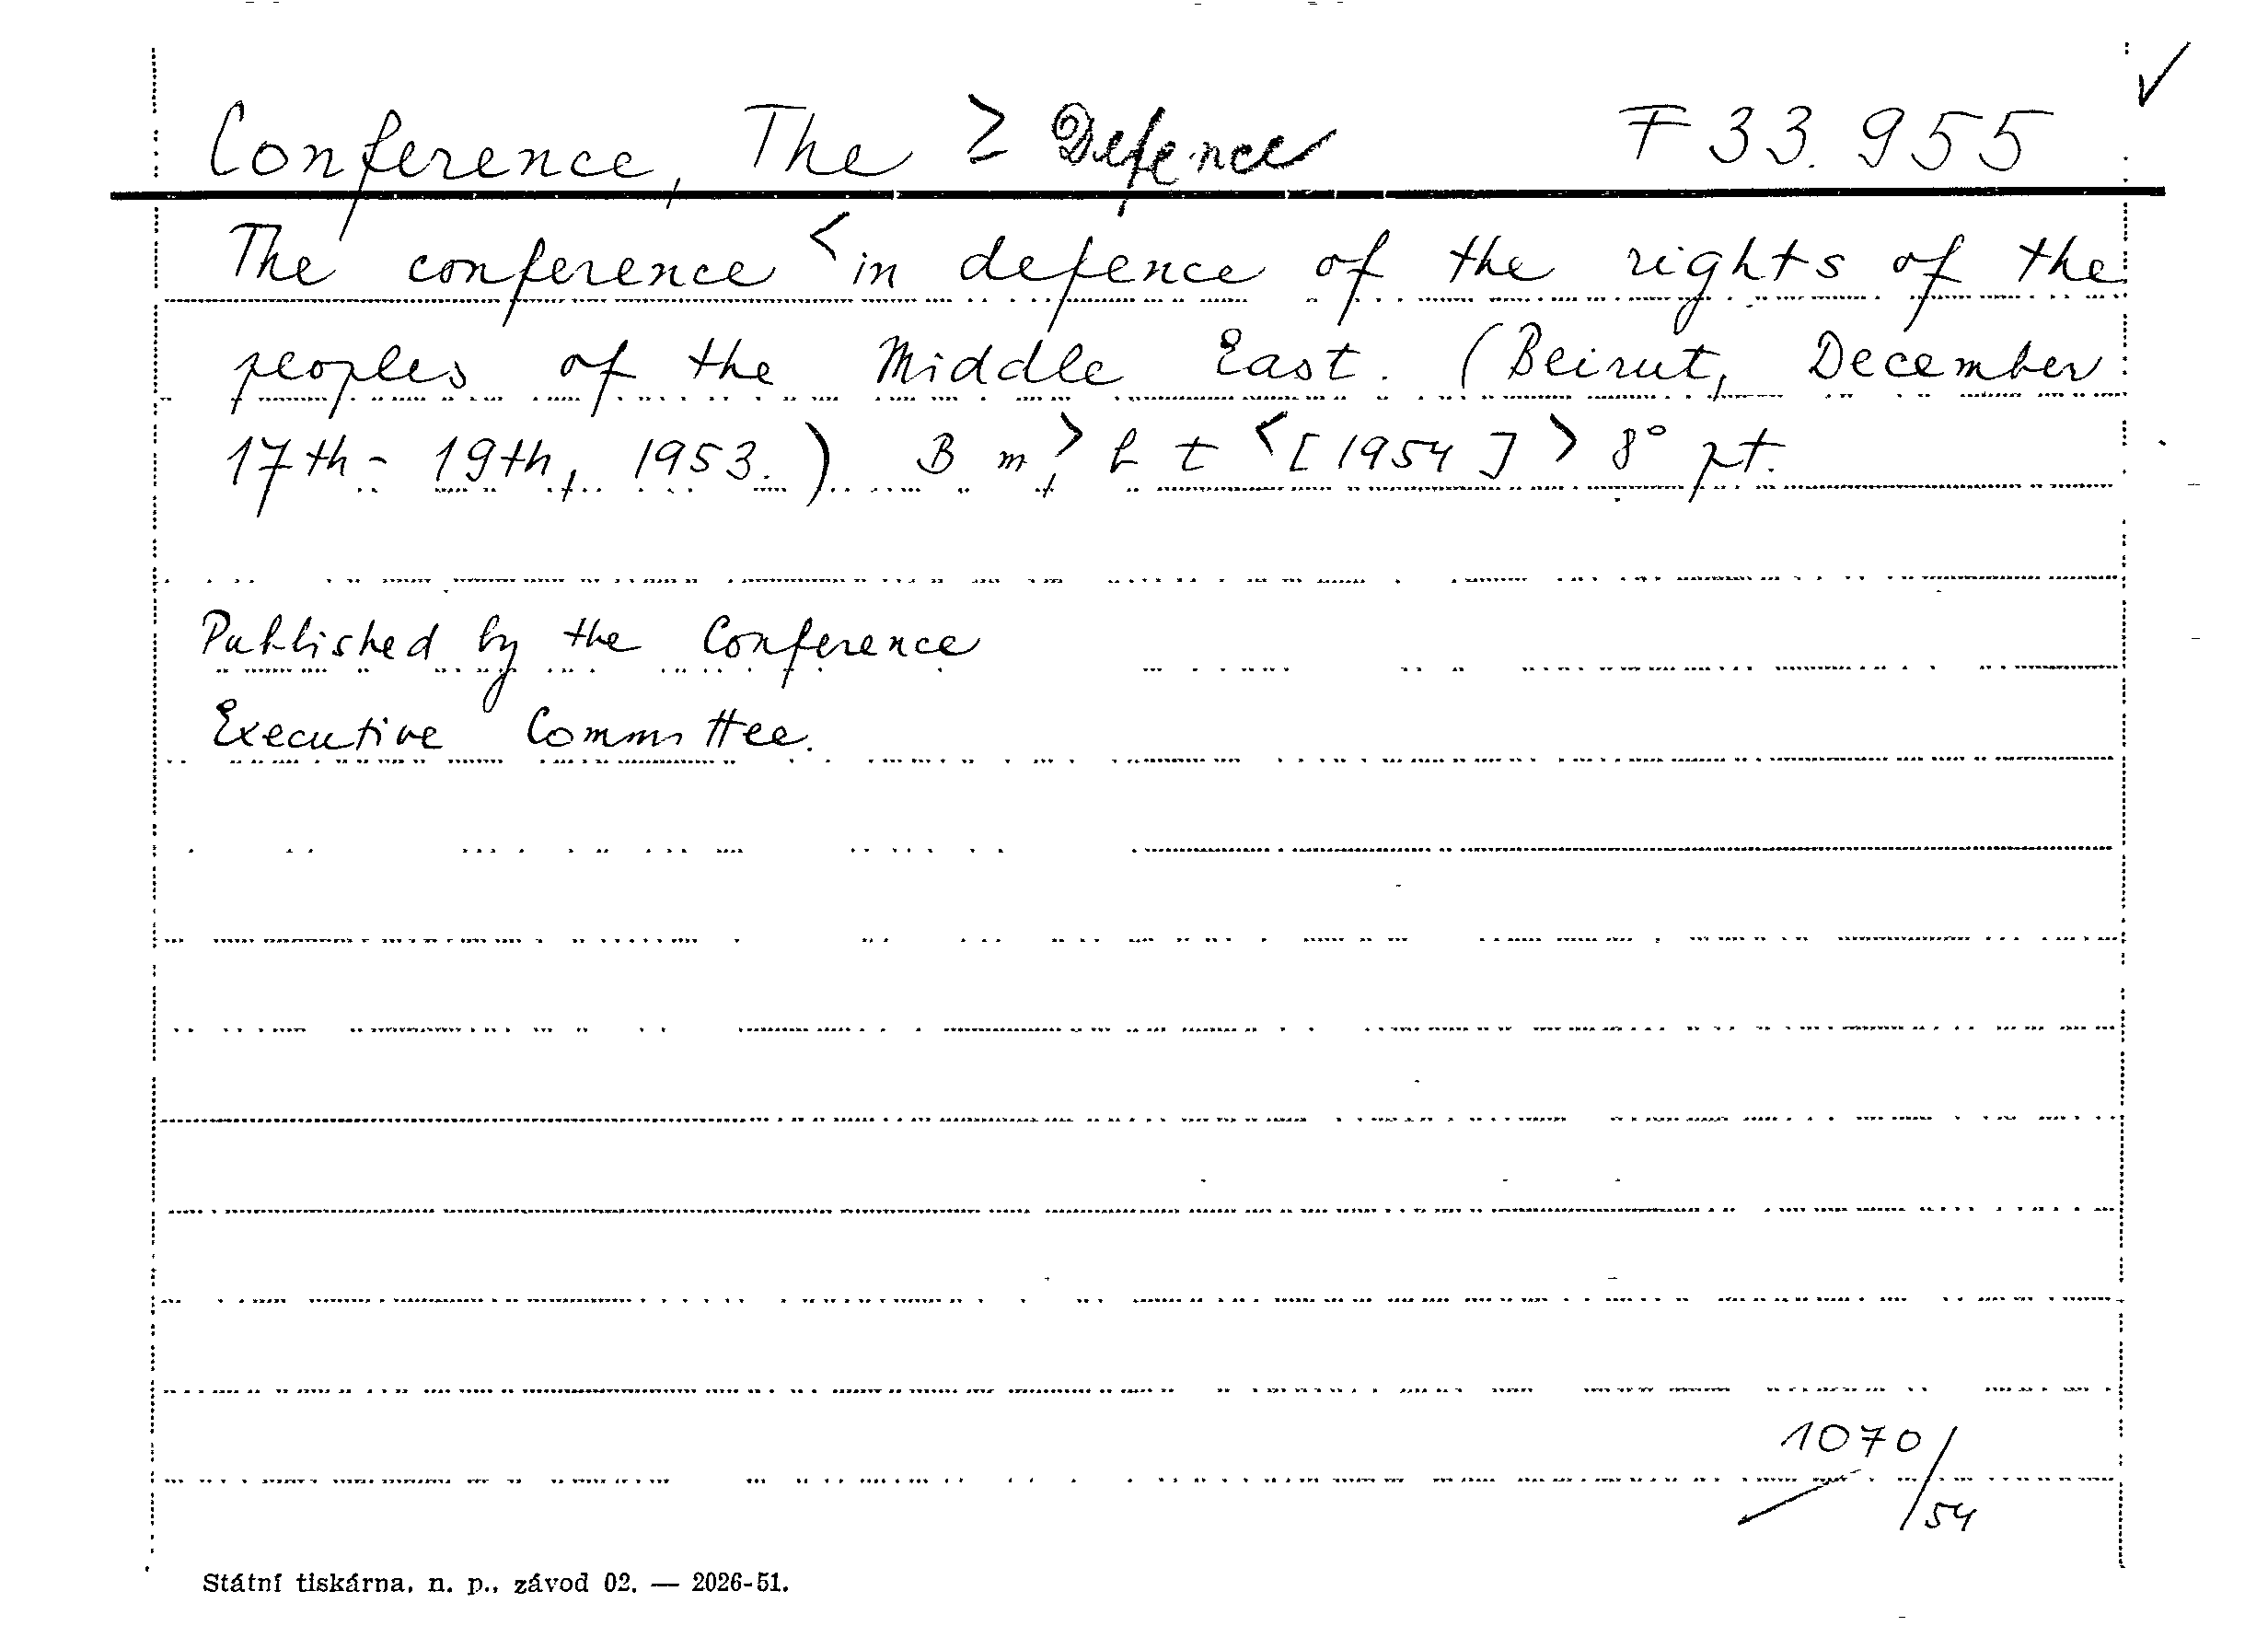 Conference, The ≥ Defence F 33.955 ✓
The conference < in defence of the rights of the
peoples of the Middle East. (Beirut, December
17th - 19th, 1953.) B m, > b t < [1954] > 8° pt.
Published by the Conference
Executive Committee.
1070/54
Státní tiskárna, n. p., závod 02. — 2026-51.